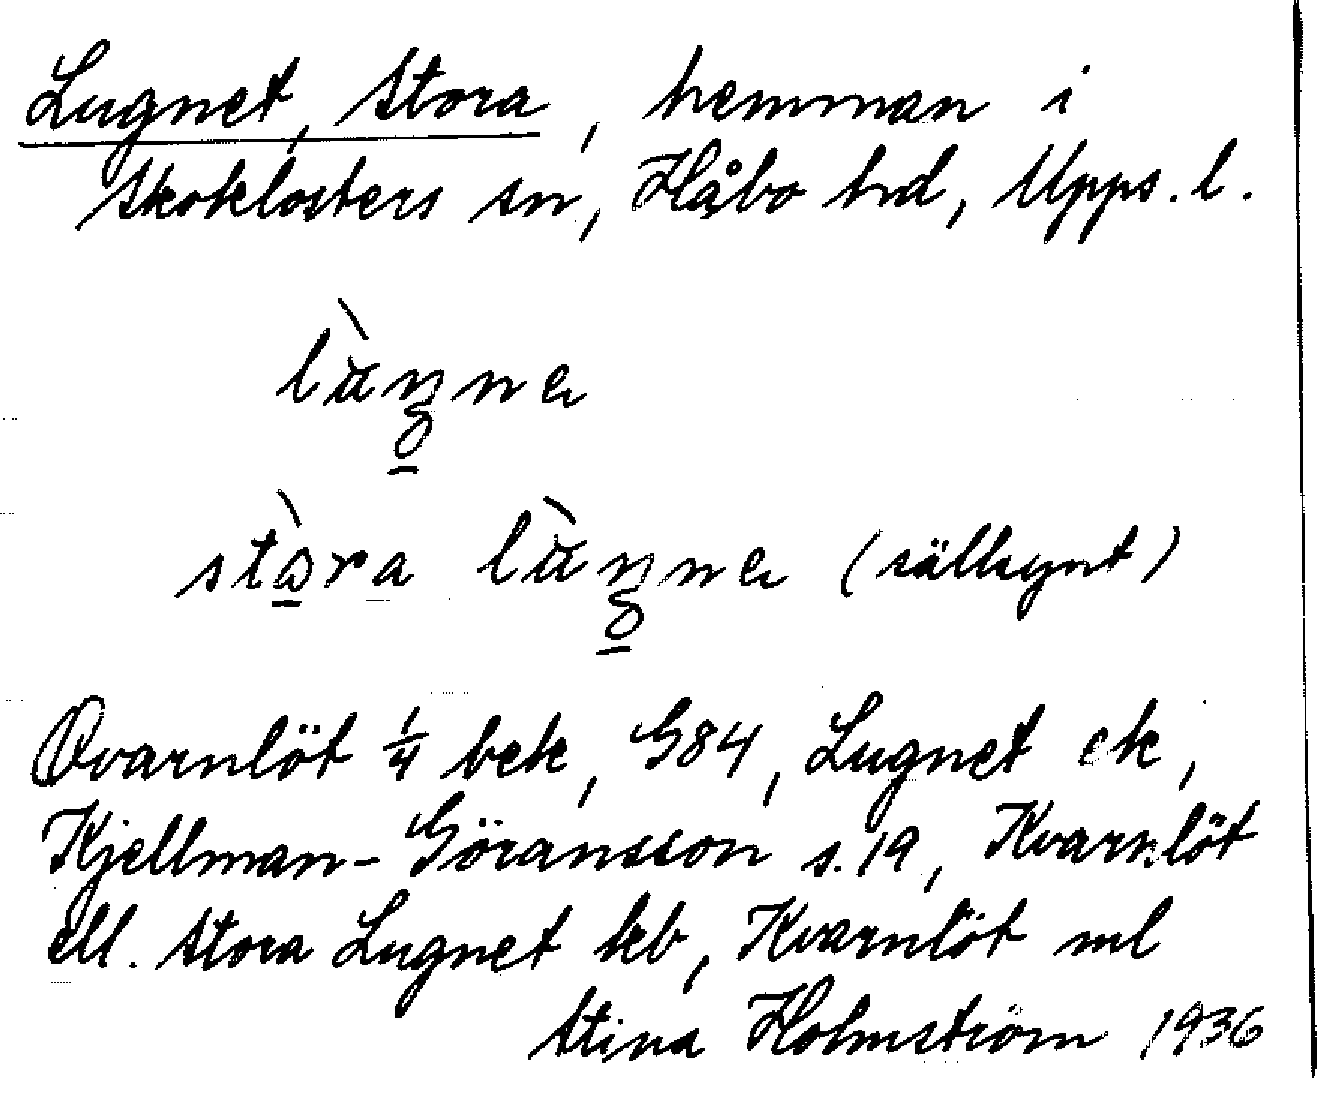 Lugnet, Stora, hemman i
Skoklosters sn, Håbo hd, Upps. l.
stora
(sällsynt)
Qvarnlöt ¼ bek, G84, Lugnet ek,
Kjellman-Göransson s. 19, Kvarnlöt
ell. Stora Lugnet kb, Kvarnlöt ml
Stina Holmström 1936